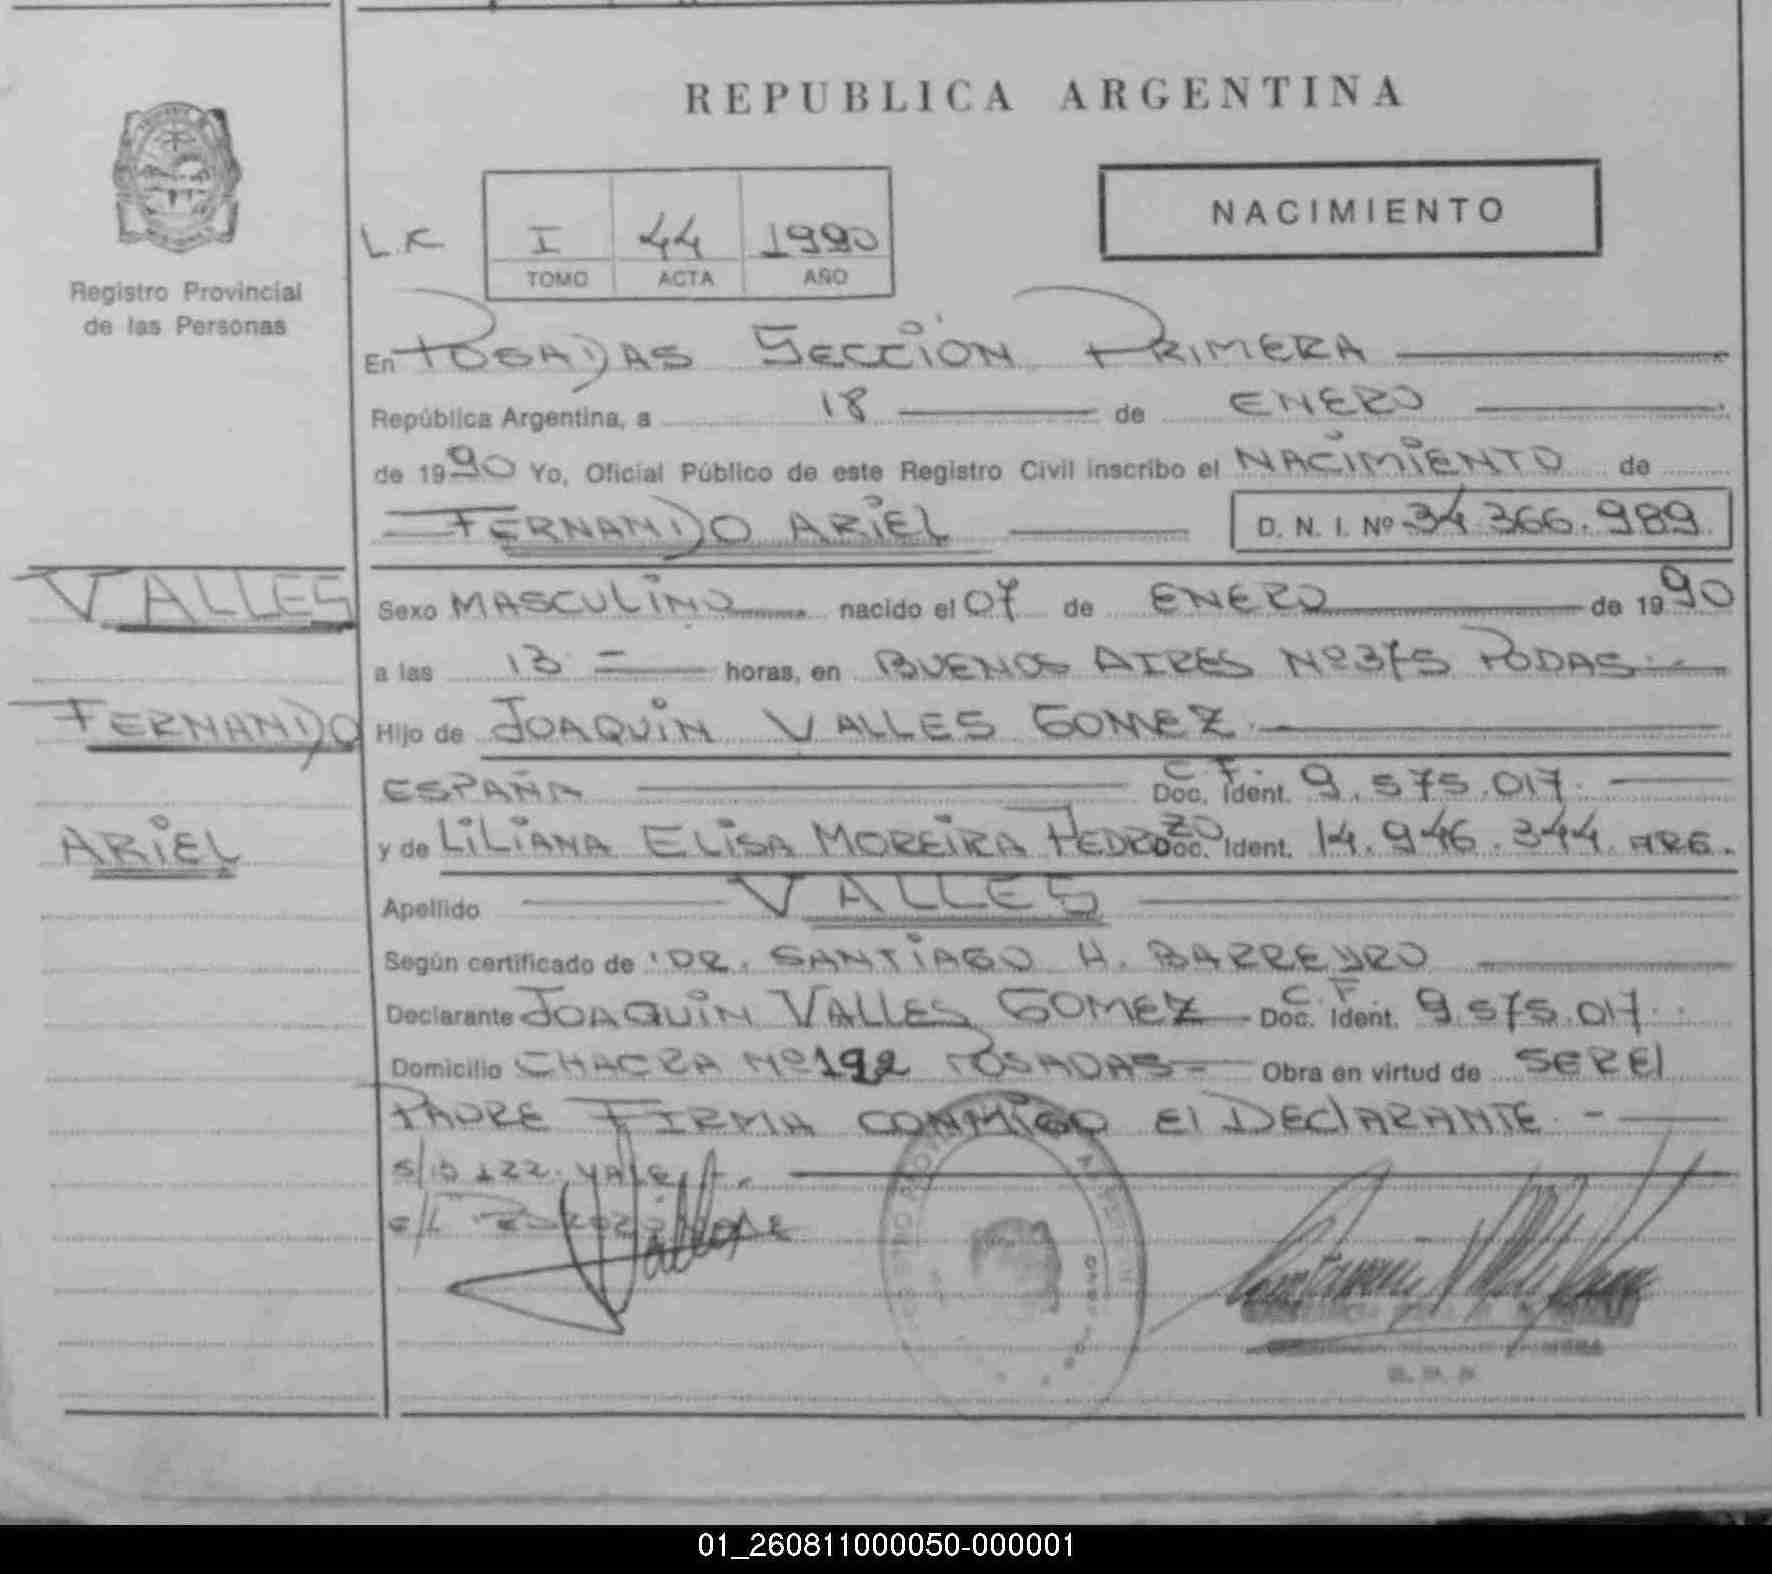 REPUBLICA ARGENTINA
Registro Provincial
de las Personas
L.K
I 44 1990
TOMO ACTA AÑO
NACIMIENTO
En POSADAS SECCIÓN PRIMERA
República Argentina, a 18 de ENERO
de 1990 Yo, Oficial Público de este Registro Civil inscribo el NACIMIENTO de
FERNANDO ARIEL
D. N. I. Nº 34.366.989
VALLES
FERNANDO
ARIEL
Sexo MASCULINO nacido el 07 de ENERO de 1990
a las 13 horas, en BUENOS AIRES Nº 375 PODAS
Hijo de JOAQUIN VALLES GOMEZ
ESPAÑA C.F. Doc. Ident. 9.575.017
y de LILIANA ELISA MOREIRA PEDROZO Doc. Ident. 14.946.344 ARG.
Apellido VALLES
Según certificado de DR. SANTIAGO H. BARREYRO
Declarante JOAQUIN VALLES GOMEZ C.F. Doc. Ident. 9.575.017
Domicilio CHACRA Nº 192 POSADAS Obra en virtud de SER El
PADRE FIRMA CONMIGO El DEClARANTE
VALE
01_260811000050-000001